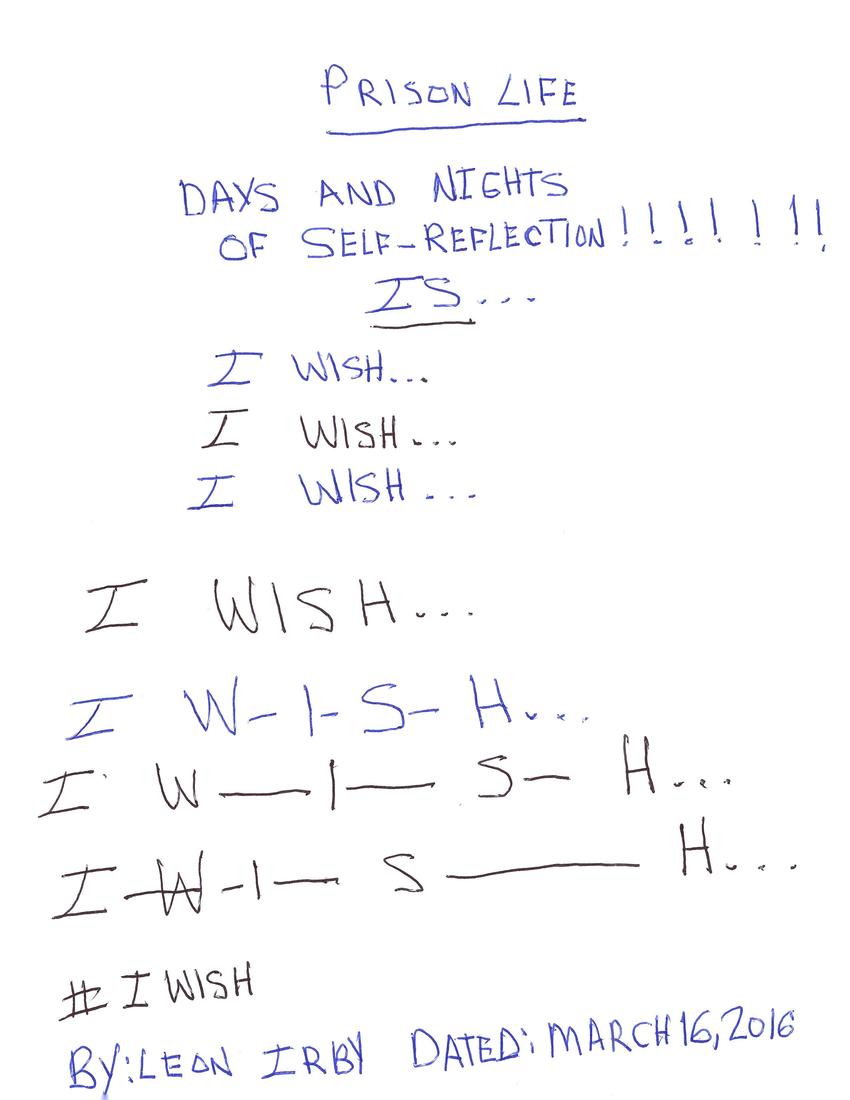 PRISON LIFE
DAYS AND NIGHTS
OF SELF-REFLECTION!!!!!!!
IS...
I WISH...
I WISH...
I WISH...
I WISH...
I W-I-S-H...
I W—I—S—H...
I-W-I—S—H...
# I WISH
BY: LEON IRBY DATED: MARCH 16, 2016